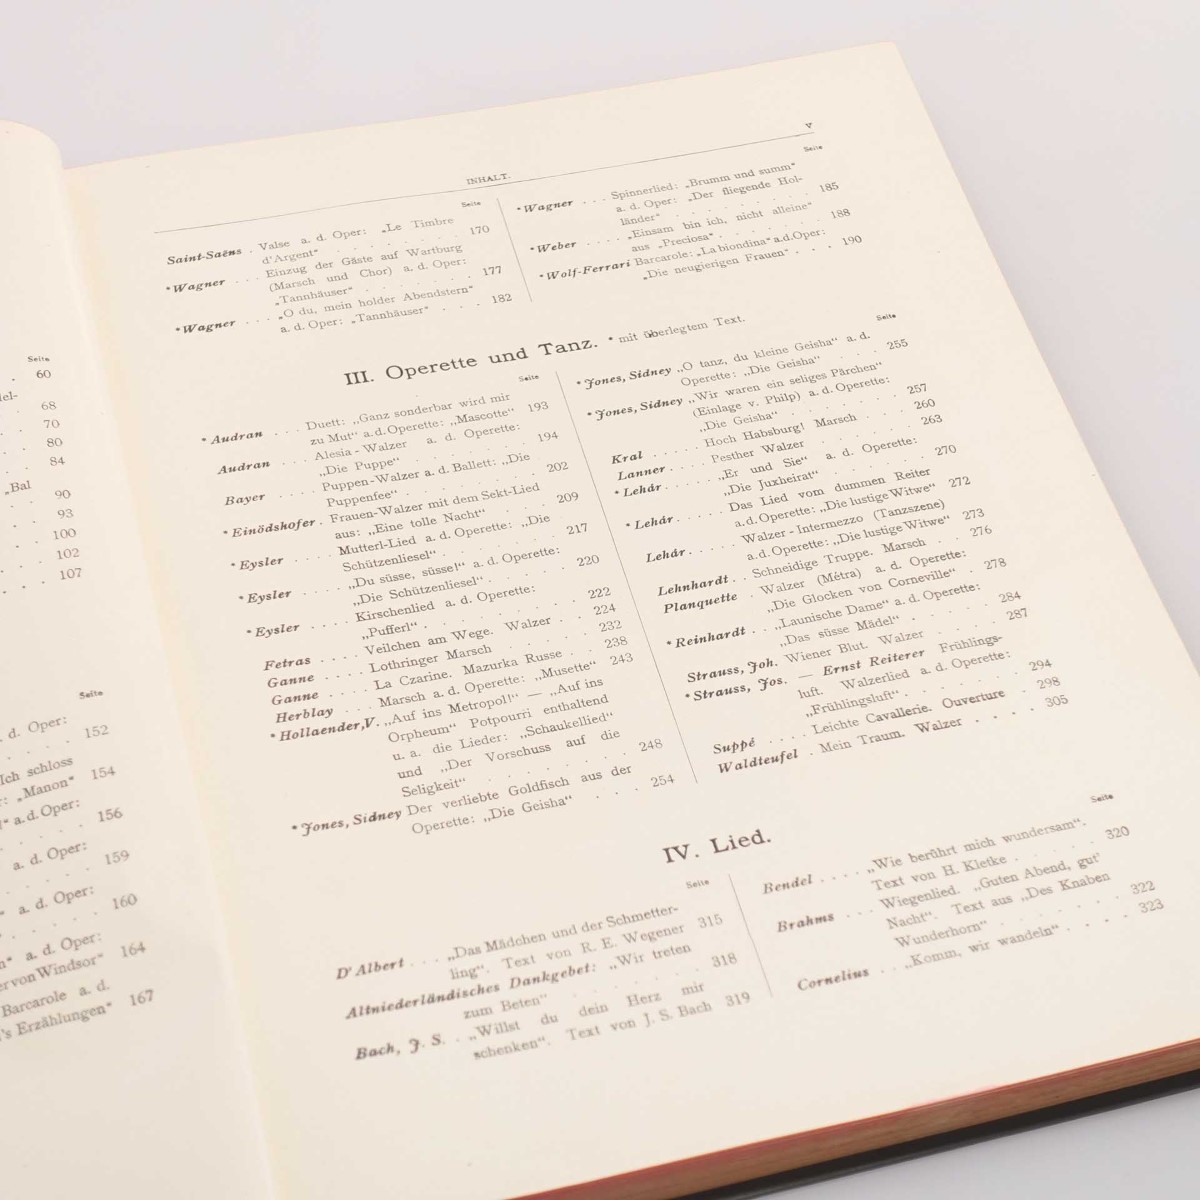 Seite
. 60
el-
. . 68
. . 70
. . 80
. . 84
„Bal
. . 90
. . 93
. . 100
. . 102
. . 107
Seite
. d. Oper:
. . . . 152
Ich schloss
r: „Manon“ 154
“ a.d. Oper:
. . . . 156
a. d. Oper:
. . . . 159
“ a. d. Oper:
. . . . 160
n“ a. d. Oper:
er von Windsor“ 164
Barcarole a. d.
's Erzählungen“ 167
V
INHALT.
Seite
Saint-Saëns . Valse a. d. Oper: „Le Timbre
d'Argent“ . . . . . . . . 170
*Wagner . . . Einzug der Gäste auf Wartburg
(Marsch und Chor) a. d. Oper:
„Tannhäuser“ . . . . . . . 177
*Wagner . . . „O du, mein holder Abendstern“
a. d. Oper: „Tannhäuser“ . . . 182
Seite
*Wagner . . . Spinnerlied: „Brumm und summ“
a. d. Oper: „Der fliegende Hol-
länder“ . . . . . . . . 185
*Weber . . . . „Einsam bin ich, nicht alleine“
aus „Preciosa“ . . . . . . 188
*Wolf-Ferrari Barcarole: „La biondina“ a.d.Oper:
„Die neugierigen Frauen“ . . . 190
III. Operette und Tanz. * mit überlegtem Text.
Seite
*Audran . . . Duett: „Ganz sonderbar wird mir
zu Mut“ a.d. Operette: „Mascotte“ 193
Audran . . . Alesia - Walzer a. d. Operette:
„Die Puppe“ . . . . . . . 194
Bayer . . . . Puppen-Walzer a. d. Ballett: „Die
Puppenfee“ . . . . . . . 202
*Einödshofer . Frauen-Walzer mit dem Sekt-Lied
aus: „Eine tolle Nacht“ . . . 209
*Eysler . . . . Mutterl-Lied a. d. Operette: „Die
Schützenliesel“ . . . . . . 217
*Eysler . . . . „Du süsse, süsse!“ a. d. Operette:
„Die Schützenliesel“ . . . . . 220
*Eysler . . . . Kirschenlied a. d. Operette:
„Pufferl“ . . . . . . . . 222
Fetras . . . . Veilchen am Wege. Walzer . . 224
Ganne . . . . Lothringer Marsch . . . . . 232
Ganne . . . . La Czarine. Mazurka Russe . . 238
Herblay . . . Marsch a. d. Operette: „Musette“ 243
*Hollaender, V. „Auf ins Metropol!“ — „Auf ins
Orpheum“ Potpourri enthaltend
u. a. die Lieder: „Schaukellied“
und „Der Vorschuss auf die
Seligkeit“ . . . . . . . . 248
*Jones, Sidney Der verliebte Goldfisch aus der
Operette: „Die Geisha“ . . . 254
Seite
*Jones, Sidney „O tanz, du kleine Geisha“ a. d.
Operette: „Die Geisha“ . . . 255
*Jones, Sidney „Wir waren ein seliges Pärchen“
(Einlage v. Philp) a. d. Operette:
„Die Geisha“ . . . . . . . 257
Kral . . . . . Hoch Habsburg! Marsch . . . 260
Lanner . . . . Pesther Walzer . . . . . . 263
*Lehár . . . . „Er und Sie“ a. d. Operette:
„Die Juxheirat“ . . . . . . 270
*Lehár . . . . . Das Lied vom dummen Reiter
a.d. Operette: „Die lustige Witwe“ 272
Lehár . . . . . Walzer - Intermezzo (Tanzszene)
a.d. Operette: „Die lustige Witwe“ 273
Lehnhardt . . Schneidige Truppe. Marsch . . 276
Planquette . Walzer (Métra) a. d. Operette:
„Die Glocken von Corneville“ . 278
*Reinhardt . . „Launische Dame“ a. d. Operette:
„Das süsse Mädel“ . . . . . 284
Strauss, Joh. Wiener Blut. Walzer . . . . 287
*Strauss, Jos. — Ernst Reiterer Frühlings-
luft. Walzerlied a. d. Operette:
„Frühlingsluft“ . . . . . . . 294
Suppé . . . . Leichte Cavallerie. Ouverture . 298
Waldteufel . Mein Traum. Walzer . . . . 305
IV. Lied.
Seite
D'Albert . . . „Das Mädchen und der Schmetter-
ling“. Text von R. E. Wegener 315
Altniederländisches Dankgebet: „Wir treten
zum Beten“ . . . . . . . 318
Bach, J. S. . „Willst du dein Herz mir
schenken“. Text von J. S. Bach 319
Seite
Bendel . . . . „Wie berührt mich wundersam“.
Text von H. Kletke . . . . . 320
Brahms . . . Wiegenlied. „Guten Abend, gut'
Nacht“. Text aus „Des Knaben
Wunderhorn“ . . . . . . . 322
Cornelius . . „Komm, wir wandeln“ . . . . 323